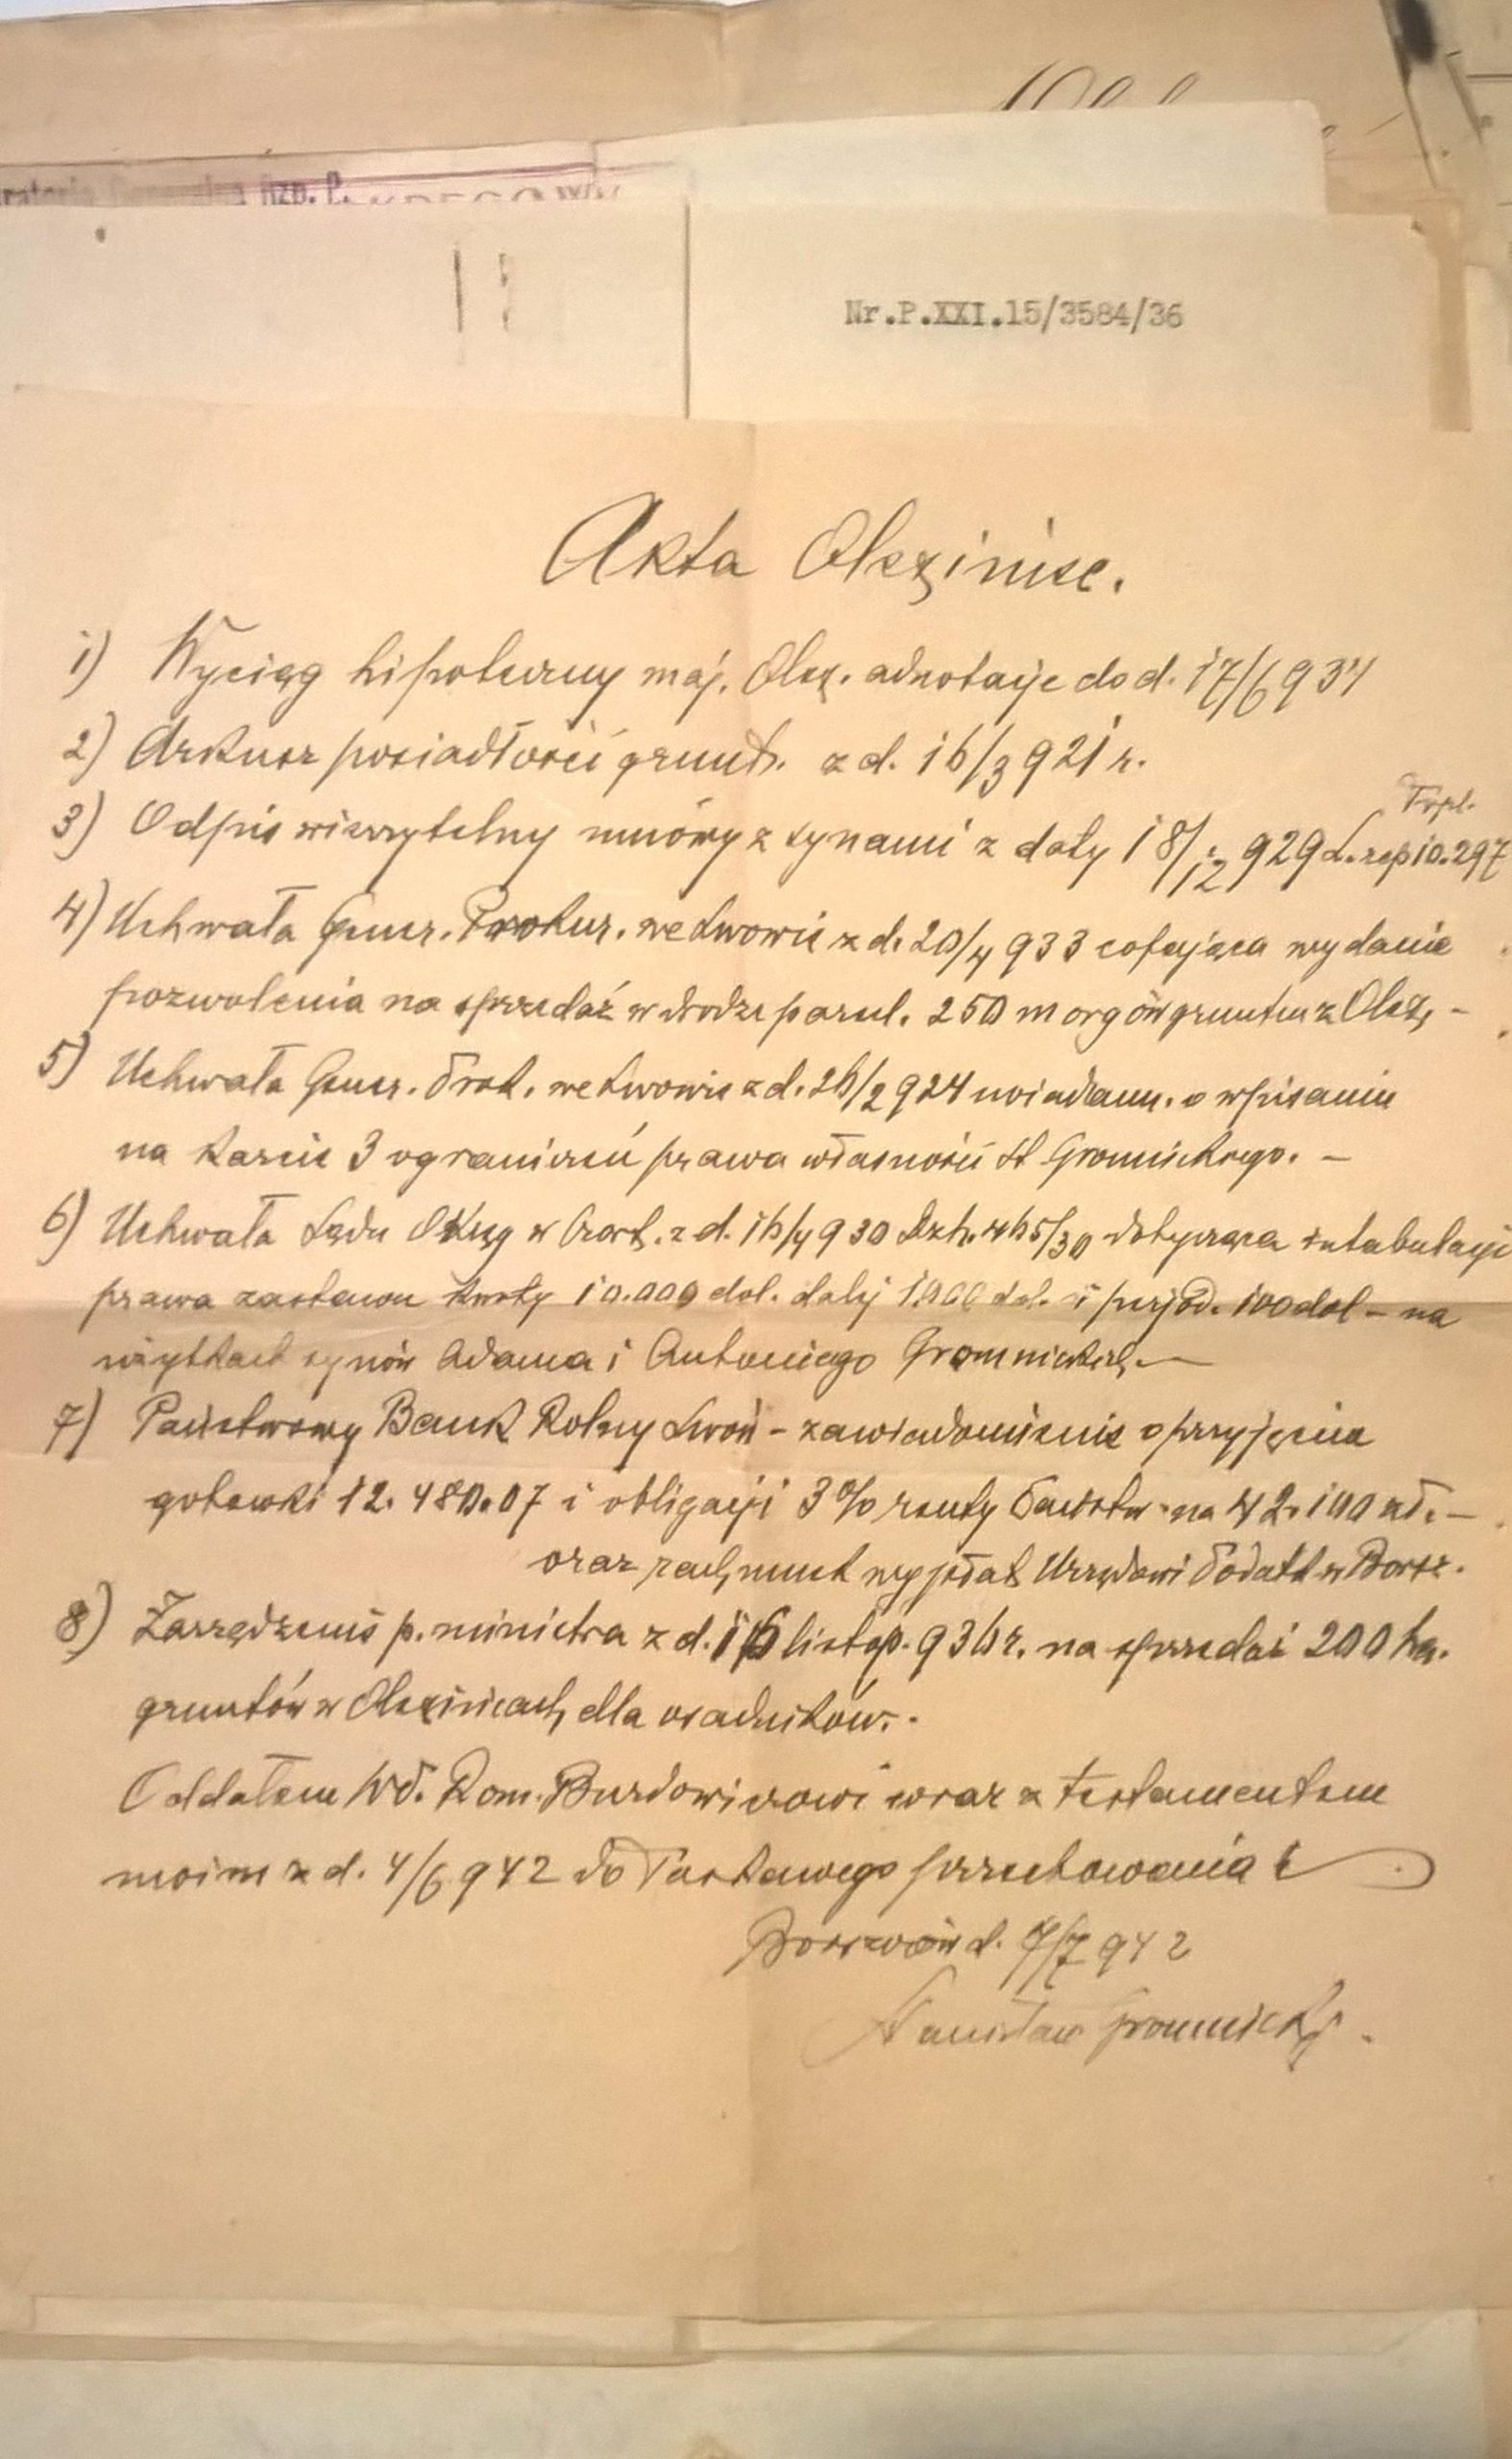 Rzp. P.
Nr.P.XXI.15/3584/36
Akta Olexiniec.
1) Wyciąg hipoteczny maj. Olex. adnotacje do d. 17/6 934
2) Arkusz posiadłości grunt. z d. 16/3 921 r.
Tnpl.
3) Odpis wierzytelny umowy z synami z daty 18/12 929 L. rep 10.297
4) Uchwała Gener. Prokur. we Lwowie z d. 20/4 933 cofająca wydanie
pozwolenia na sprzedaż w drodze parcel. 250 morgów gruntu z Olex. –
5) Uchwała Gener. Prok. we Lwowie z d. 26/2 924 uwiadam. o wpisaniu
na karcie 3 ograniczeń prawa własności St Gromnickiego. –
6) Uchwała Sądu Okręg w Czort. z d. 16/4 930 Dzh. 465/30 dotycząca intabulacji
prawa zastawu kwoty 10.000 dol. dalej 1.000 dol. i perjod. 100 dol – na
użytkach synów Adama i Antoniego Gromnickich. —
7) Państwowy Bank Rolny Lwów – zawiadomienie o przyjęciu
gotówki 12.480.07 i obligacji 3% renty Państw. na 42.100 zł. –
oraz rachunek wypłat Urzędowi Podatk w Borsz.
8) Zarządzenie p. ministra z d. 16 listop. 936 r. na sprzedaż 200 ha.
gruntów w Olexińcach dla osadników. -
Oddałem Wd. Rom. Burdowiczowi wraz z testamentem
moim z d. 4/6 942 do łaskawego przechowania
Borszczów d. 7/7 942
Stanisław Gromnicki.